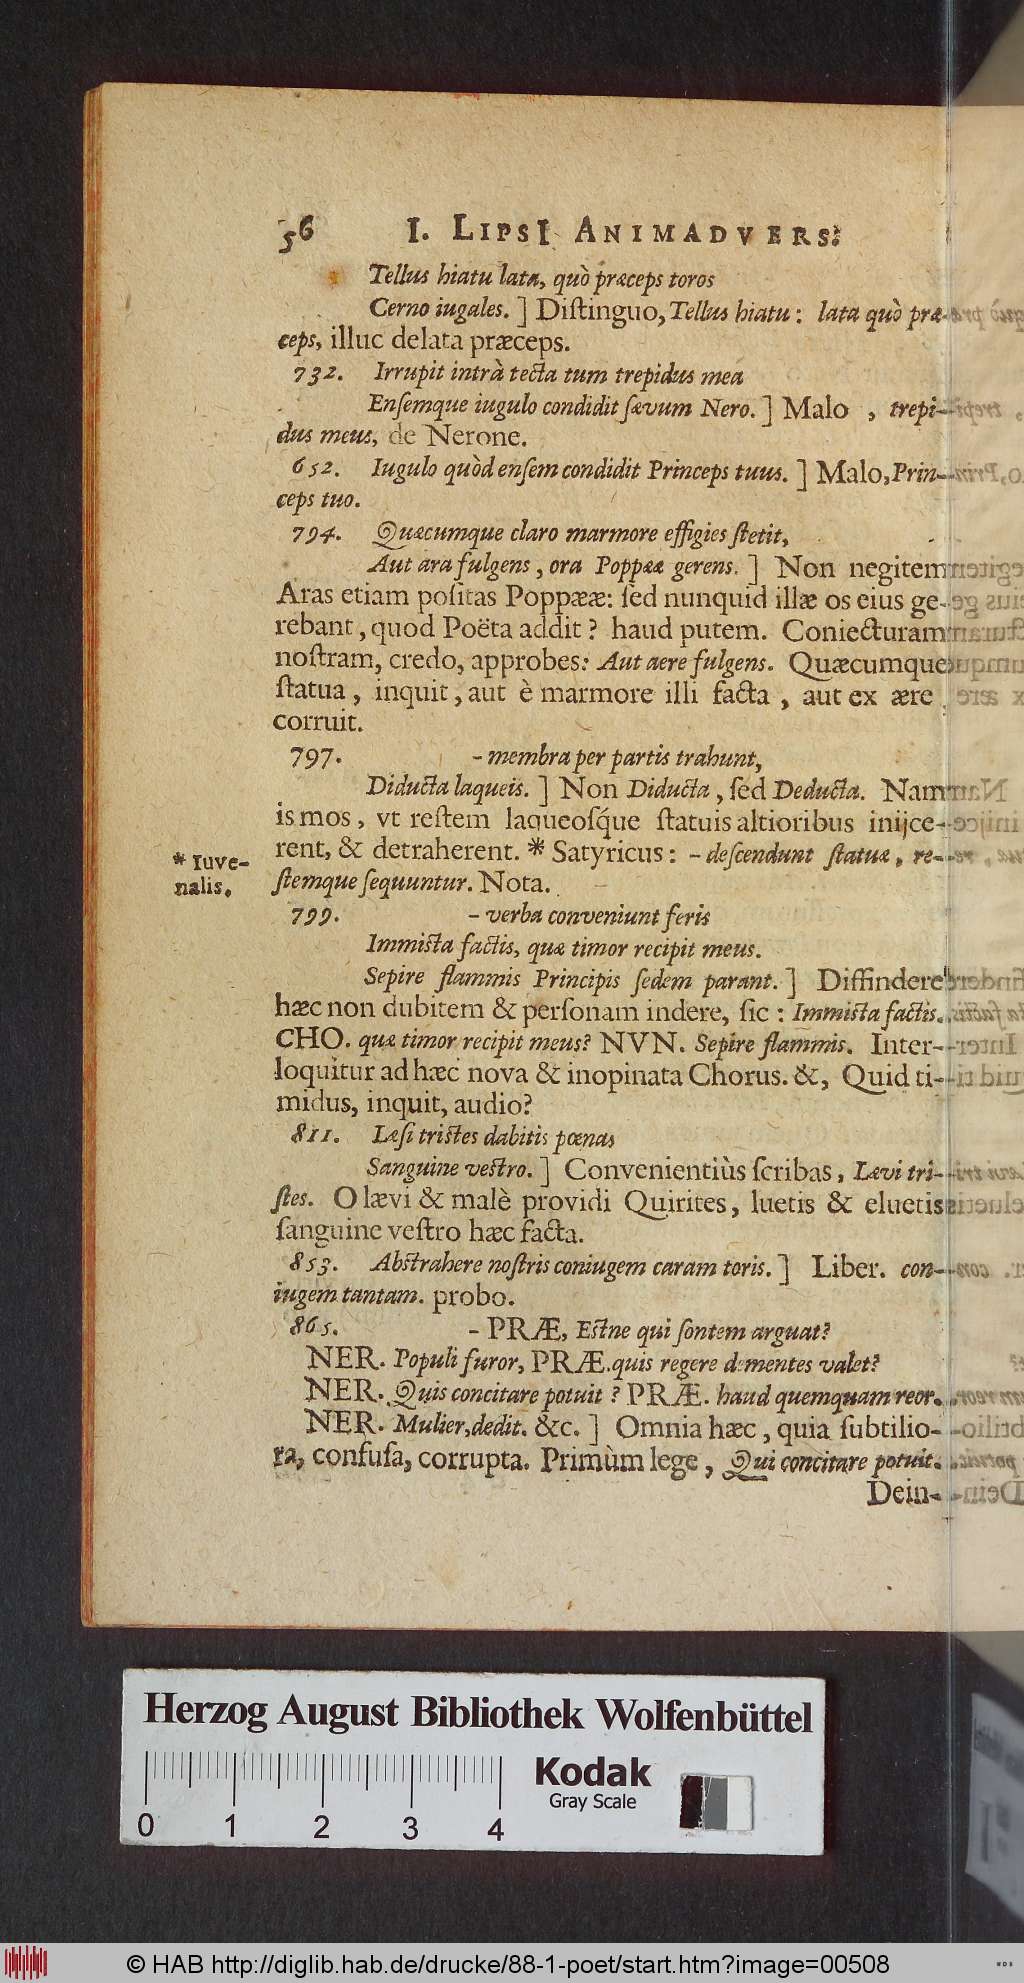 56 I. LIPSI ANIMADVERS:
Tellus hiatu lata, quò præceps toros
Cerno iugales.] Distinguo, Tellus hiatu: lata quò præ-
ceps, illuc delata præceps.
732. Irrupit intrà tecta tum trepidus mea
Ensemque iugulo condidit sævum Nero.] Malo, trepi-
dus meus, de Nerone.
652. Iugulo quòd ensem condidit Princeps tuus.] Malo, Prin-
ceps tuo.
794. Quæcumque claro marmore effigies stetit,
Aut ara fulgens, ora Poppææ gerens.] Non negitem
Aras etiam positas Poppææ: sed nunquid illæ os eius ge-
rebant, quod Poëta addit? haud putem. Coniecturam
nostram, credo, approbes: Aut aere fulgens. Quæcumque
statua, inquit, aut è marmore illi facta, aut ex ære
corruit.
797. - membra per partis trahunt,
Diducta laqueis.] Non Diducta, sed Deducta. Nam
is mos, vt restem laqueosq́ue statuis altioribus inijce-
rent, & detraherent. * Satyricus: - descendunt statuæ, re-
* Iuve-
nalis.
stemque sequuntur. Nota.
799. - verba conveniunt feris
Immista factis, quæ timor recipit meus.
Sepire flammis Principis sedem parant.] Diffindere
hæc non dubitem & personam indere, sic: Immista factis.
CHO. quæ timor recipit meus? NVN. Sepire flammis. Inter-
loquitur ad hæc nova & inopinata Chorus. &, Quid ti-
midus, inquit, audio?
811. Læsi tristes dabitis pœnas
Sanguine vestro.] Convenientiùs scribas, Lævi tri-
stes. O lævi & malè providi Quirites, luetis & eluetis
sanguine vestro hæc facta.
853. Abstrahere nostris coniugem caram toris.] Liber. con-
iugem tantam. probo.
865. - PRÆ, Estne qui sontem arguat?
NER. Populi furor, PRÆ. quis regere dementes valet?
NER. Quis concitare potuit? PRÆ. haud quemquam reor.
NER. Mulier, dedit. &c.] Omnia hæc, quia subtilio-
ra, confusa, corrupta. Primùm lege, Qui concitare potuit.
Dein-
Herzog August Bibliothek Wolfenbüttel
Kodak
Gray Scale
0 1 2 3 4
© HAB http://diglib.hab.de/drucke/88-1-poet/start.htm?image=00508